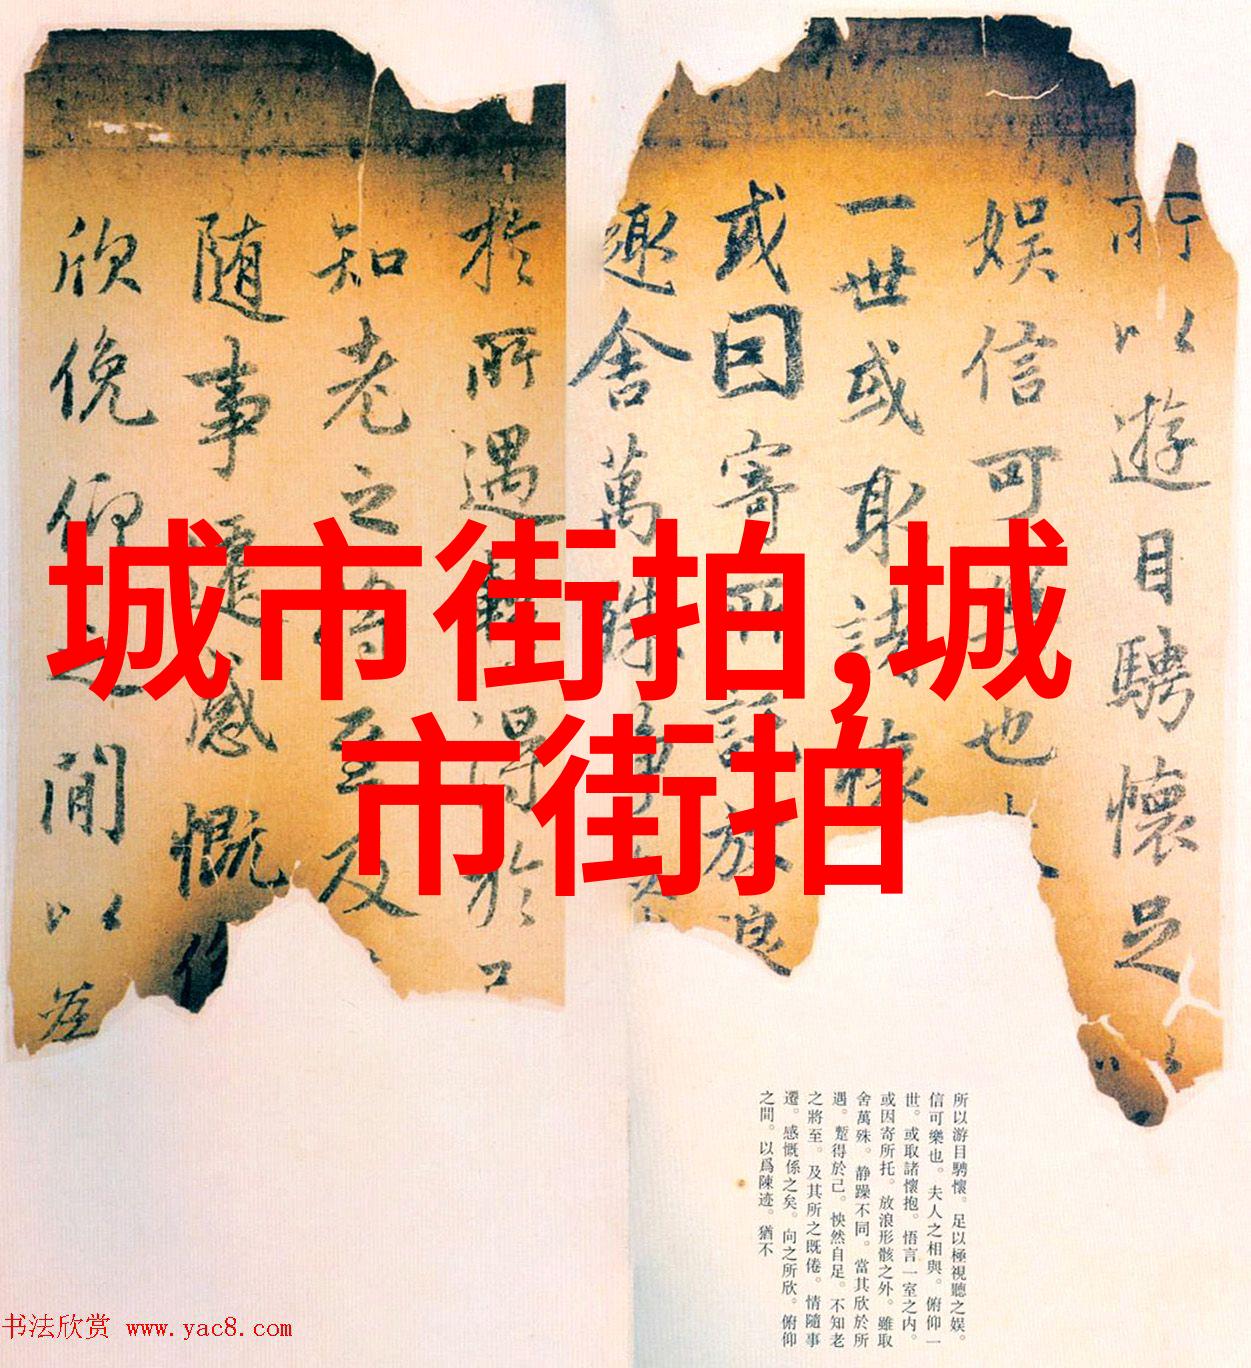 所以遊目騁懷足以
娯信可
也
一世或取諸懷
或曰寄
放浪
趣舍萬殊
於所遇
得於己
知老之將至及
随事遷感慨係
欣俛仰之間以為
城市街拍,城
市街拍
所以游目騁懷。足以極視聽之娱。
信可樂也。夫人之相與。俯仰一
世。或取諸懷抱。悟言一室之内。
或因寄所托。放浪形骸之外。雖取
舍萬殊。静躁不同。當其欣於所
遇。蹔得於己。怏然自足。不知老
之將至。及其所之既倦。情隨事
遷。感慨係之矣。向之所欣。俯仰
之間。以爲陳迹。猶不
书法欣赏 www.yac8.com